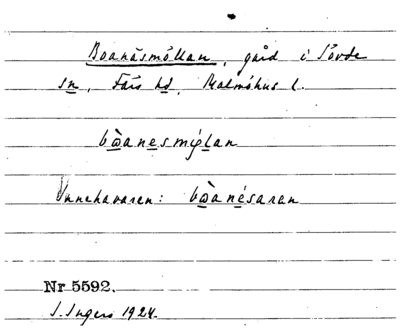 Boanäsmöllan, gård i Sövde
sn, Färs hd, Malmöhus l.
bòanesmýlan
Innehavaren: bòanésaran
Nr 5592.
I. Ingers 1924.